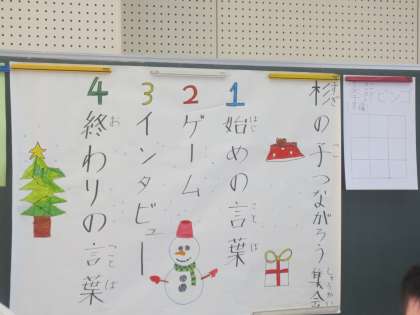 杉の子つながろう集会
1 始めの言葉
2 ゲーム
3 インタビュー
4 終わりの言葉